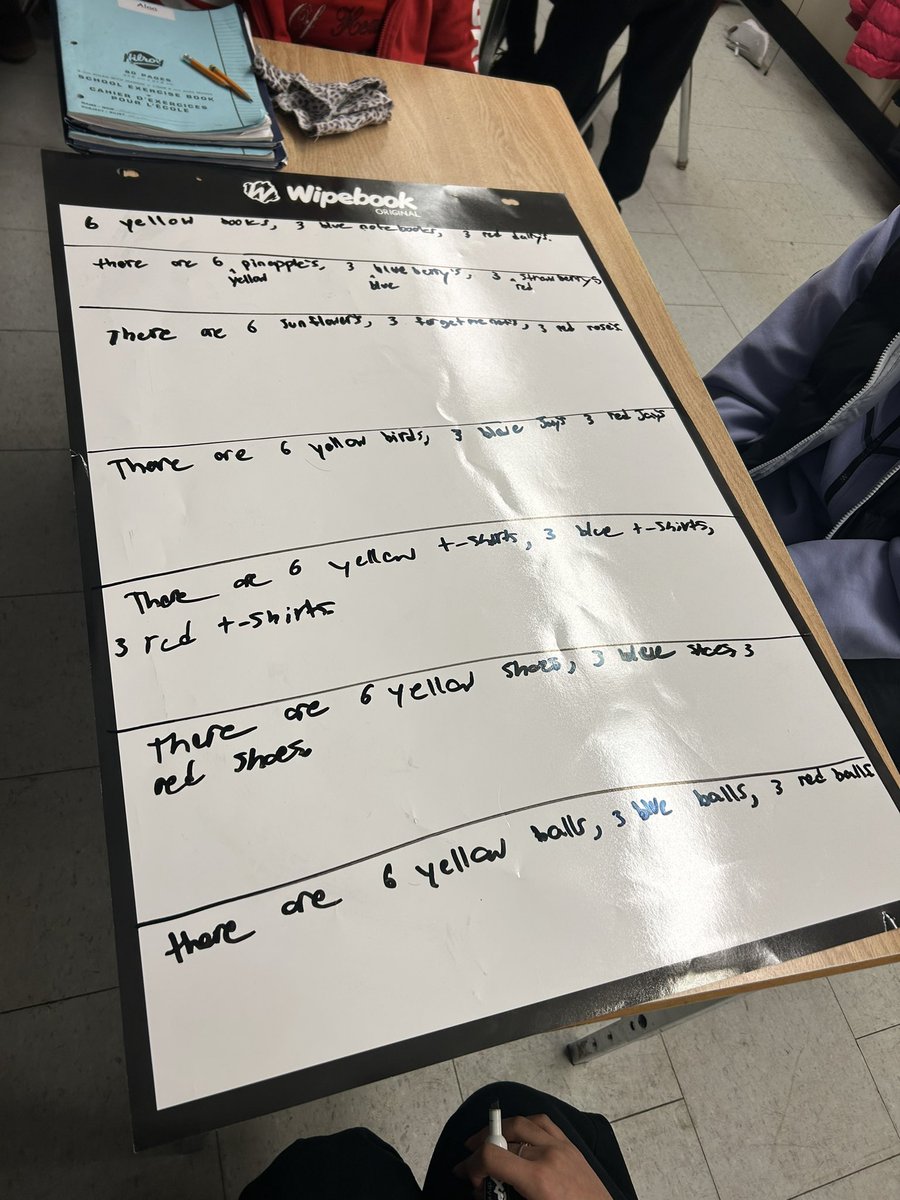 Alaa
Hilroy
80 PAGES
SCHOOL EXERCISE BOOK
CAHIER D'EXERCICES
POUR L'ÉCOLE
Wipebook
ORIGINAL
6 yellow books, 3 blue notebooks, 3 red
there are 6 pinapple's, 3 blueberry's, 3 strawberrys
yellow blue red
There are 6 sunflowers, 3 forgetmenots, 3 red roses
There are 6 yellow birds, 3 blue Jays 3 red Jays
There are 6 yellow t-shirts, 3 blue t-shirts,
3 red t-shirts.
There are 6 yellow shoes, 3 blue shoes, 3
red shoes.
there are 6 yellow balls, 3 blue balls, 3 red balls